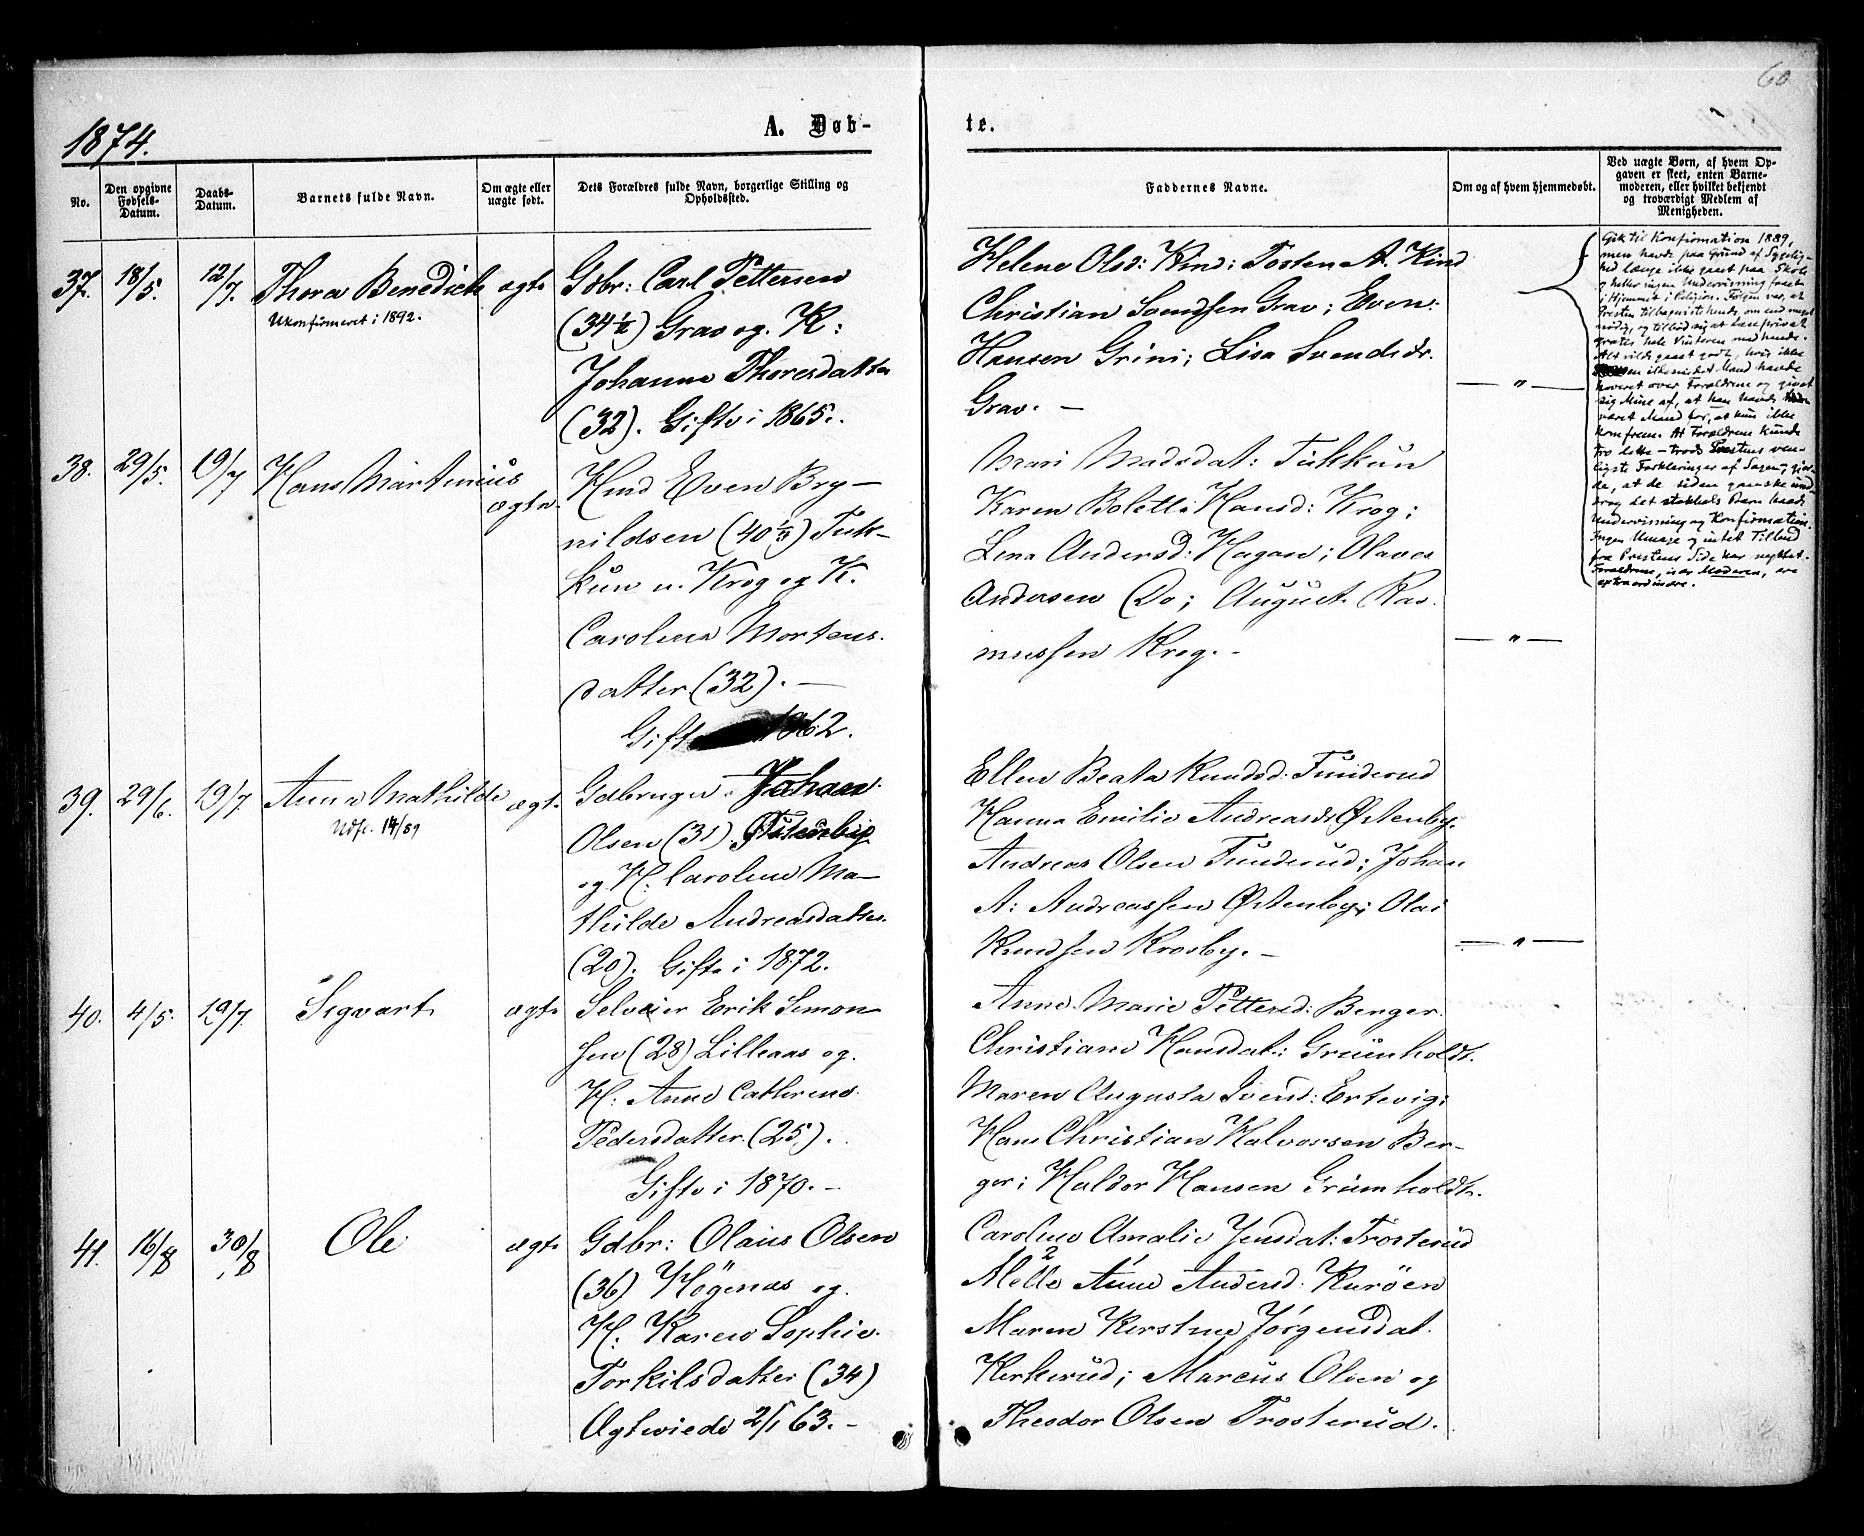 60
1874.
A. Døb-
te.
No.
Den opgivne Fødsels-Datum.
Daabs-Datum.
Barnets fulde Navn.
Om ægte eller uægte født.
Dets Forældres fulde Navn, borgerlige Stilling og Opholdssted.
Faddernes Navne.
Om og af hvem hjemmedøbt.
Ved uægte Børn, af hvem Op-
gaven er skeet, enten Barne-
moderen, eller hvilket bekjendt
og troværdigt Medlem af
Menigheden.
37. 18/5. 12/7. Thora Benedicte ægte
Ukonfirmeret i 1892.
Gdbr: Carl Pettersen
(34½) Grav og K:
Johanne Thoresdatter
(32). Gifte i 1865.
Helene Olsd: Kind; Tosten A. Kind
Christian Svendsen Grav; Even
Hansen Grini; Lisa Svendsdr.
Grav. —
— " —
Gik til Konfirmation 1889,
men havde paa Grund af Sygelig-
hed længe ikke gaaet paa Skole
og heller ingen Undervisning faaet
i Hjemmet i Religion. Følgen var, at
Presten tilbageviste hende, om end meget
nødig, og tilbød sig at læse privat
gratis hele Vinteren med hende.
Alt vilde gaaet godt, hvis ikke
en Mand havde
hoveret over Forældrene og givet
sig Mine af, at han havde
været Mand for, at hun ikke
kom frem. At Forældrene kunde
tro dette – trods Prestens ven-
ligste Forklaringer af Sagen, gjor-
de, at de siden ganske und-
drog det stakkels Barn baade
Undervisning og Konfirmation.
Ingen Umage og intet Tilbud
fra Prestens Side har nyttet.
Forældrene, især Moderen, ere
extraordinære.
38. 29/5. 19/7 Hans Martinius
ægte
Hmd Even Bry-
nildsen (40⅓) Tuk-
kun u. Krog og K.
Caroline Mortens-
datter (32). —
Gift 1862.
Mari Madsdat: Tukkun
Karen Bolette Hansd: Krog;
Lina Andersd: Hagan; Olaves
Andersen Do; August Ras-
mussen Krog. –
— " —
39. 29/6. 19/7 Anna Mathilde ægte
Udfl. 14/89
Gdbruger Johan
Olsen (31) Østenby
og K. Caroline Ma-
thilde Andreasdatter
(20). Gifte i 1872.
Ellen Beata Knudsd: Funderud
Hanna Emilie Andreasdr Østenby.
Andreas Olsen Funderud; Johan
A: Andreassen Østenby; Olai
Knudsen Krosby. –
— " —
40. 4/5. 19/7. Sigvart ægte
Selveier Erik Simon
sen (28) Lilleaas og
K: Anne Cathrine
Pedersdatter (25).
Gifte i 1870. –
Anne Marie Pettersd: Berger
Christiane Hansdat: Grimholdt.
Maren Augusta Svend: Ertevig;
Hans Christian Halvorsen Ber-
ger; Haldor Hansen Grimholdt.
41. 16/8 30/8 Ole ægte
Gdbr: Olaus Olsen
(36) Högenæs og
K. Karen Sophie
Torkilsdatter (34)
Ægteviede 2/1 63. –
Caroline Amalie Jensdat: Trosterud
Mette Anne Andersd: Kuröen
Maren Kirstine Jørgensdat.
Kirkerud; Marcus Olsen og
Theodor Olsen Trosterud.